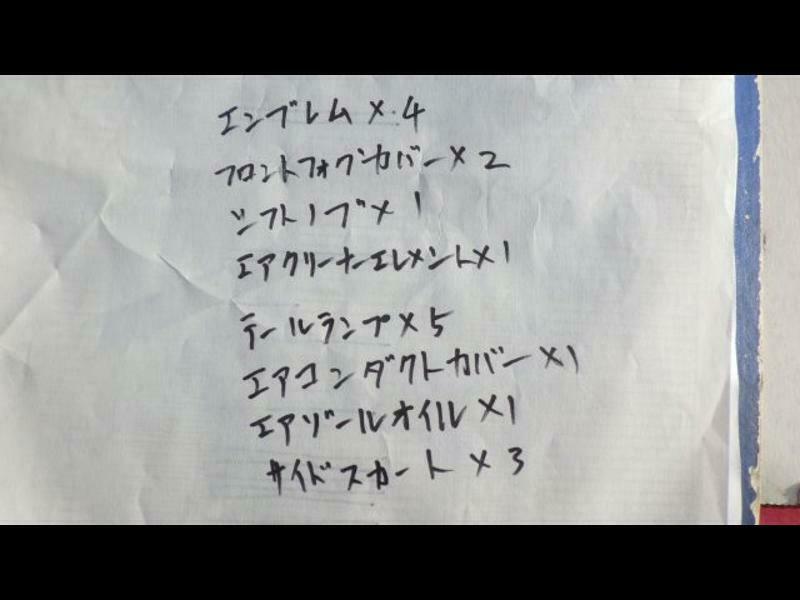 エンブレム×4
フロントフォグカバー×2
シフトノブ×1
エアクリーナーエレメント×1
テールランプ×5
エアコンダクトカバー×1
エアゾールオイル×1
サイドスカート×3